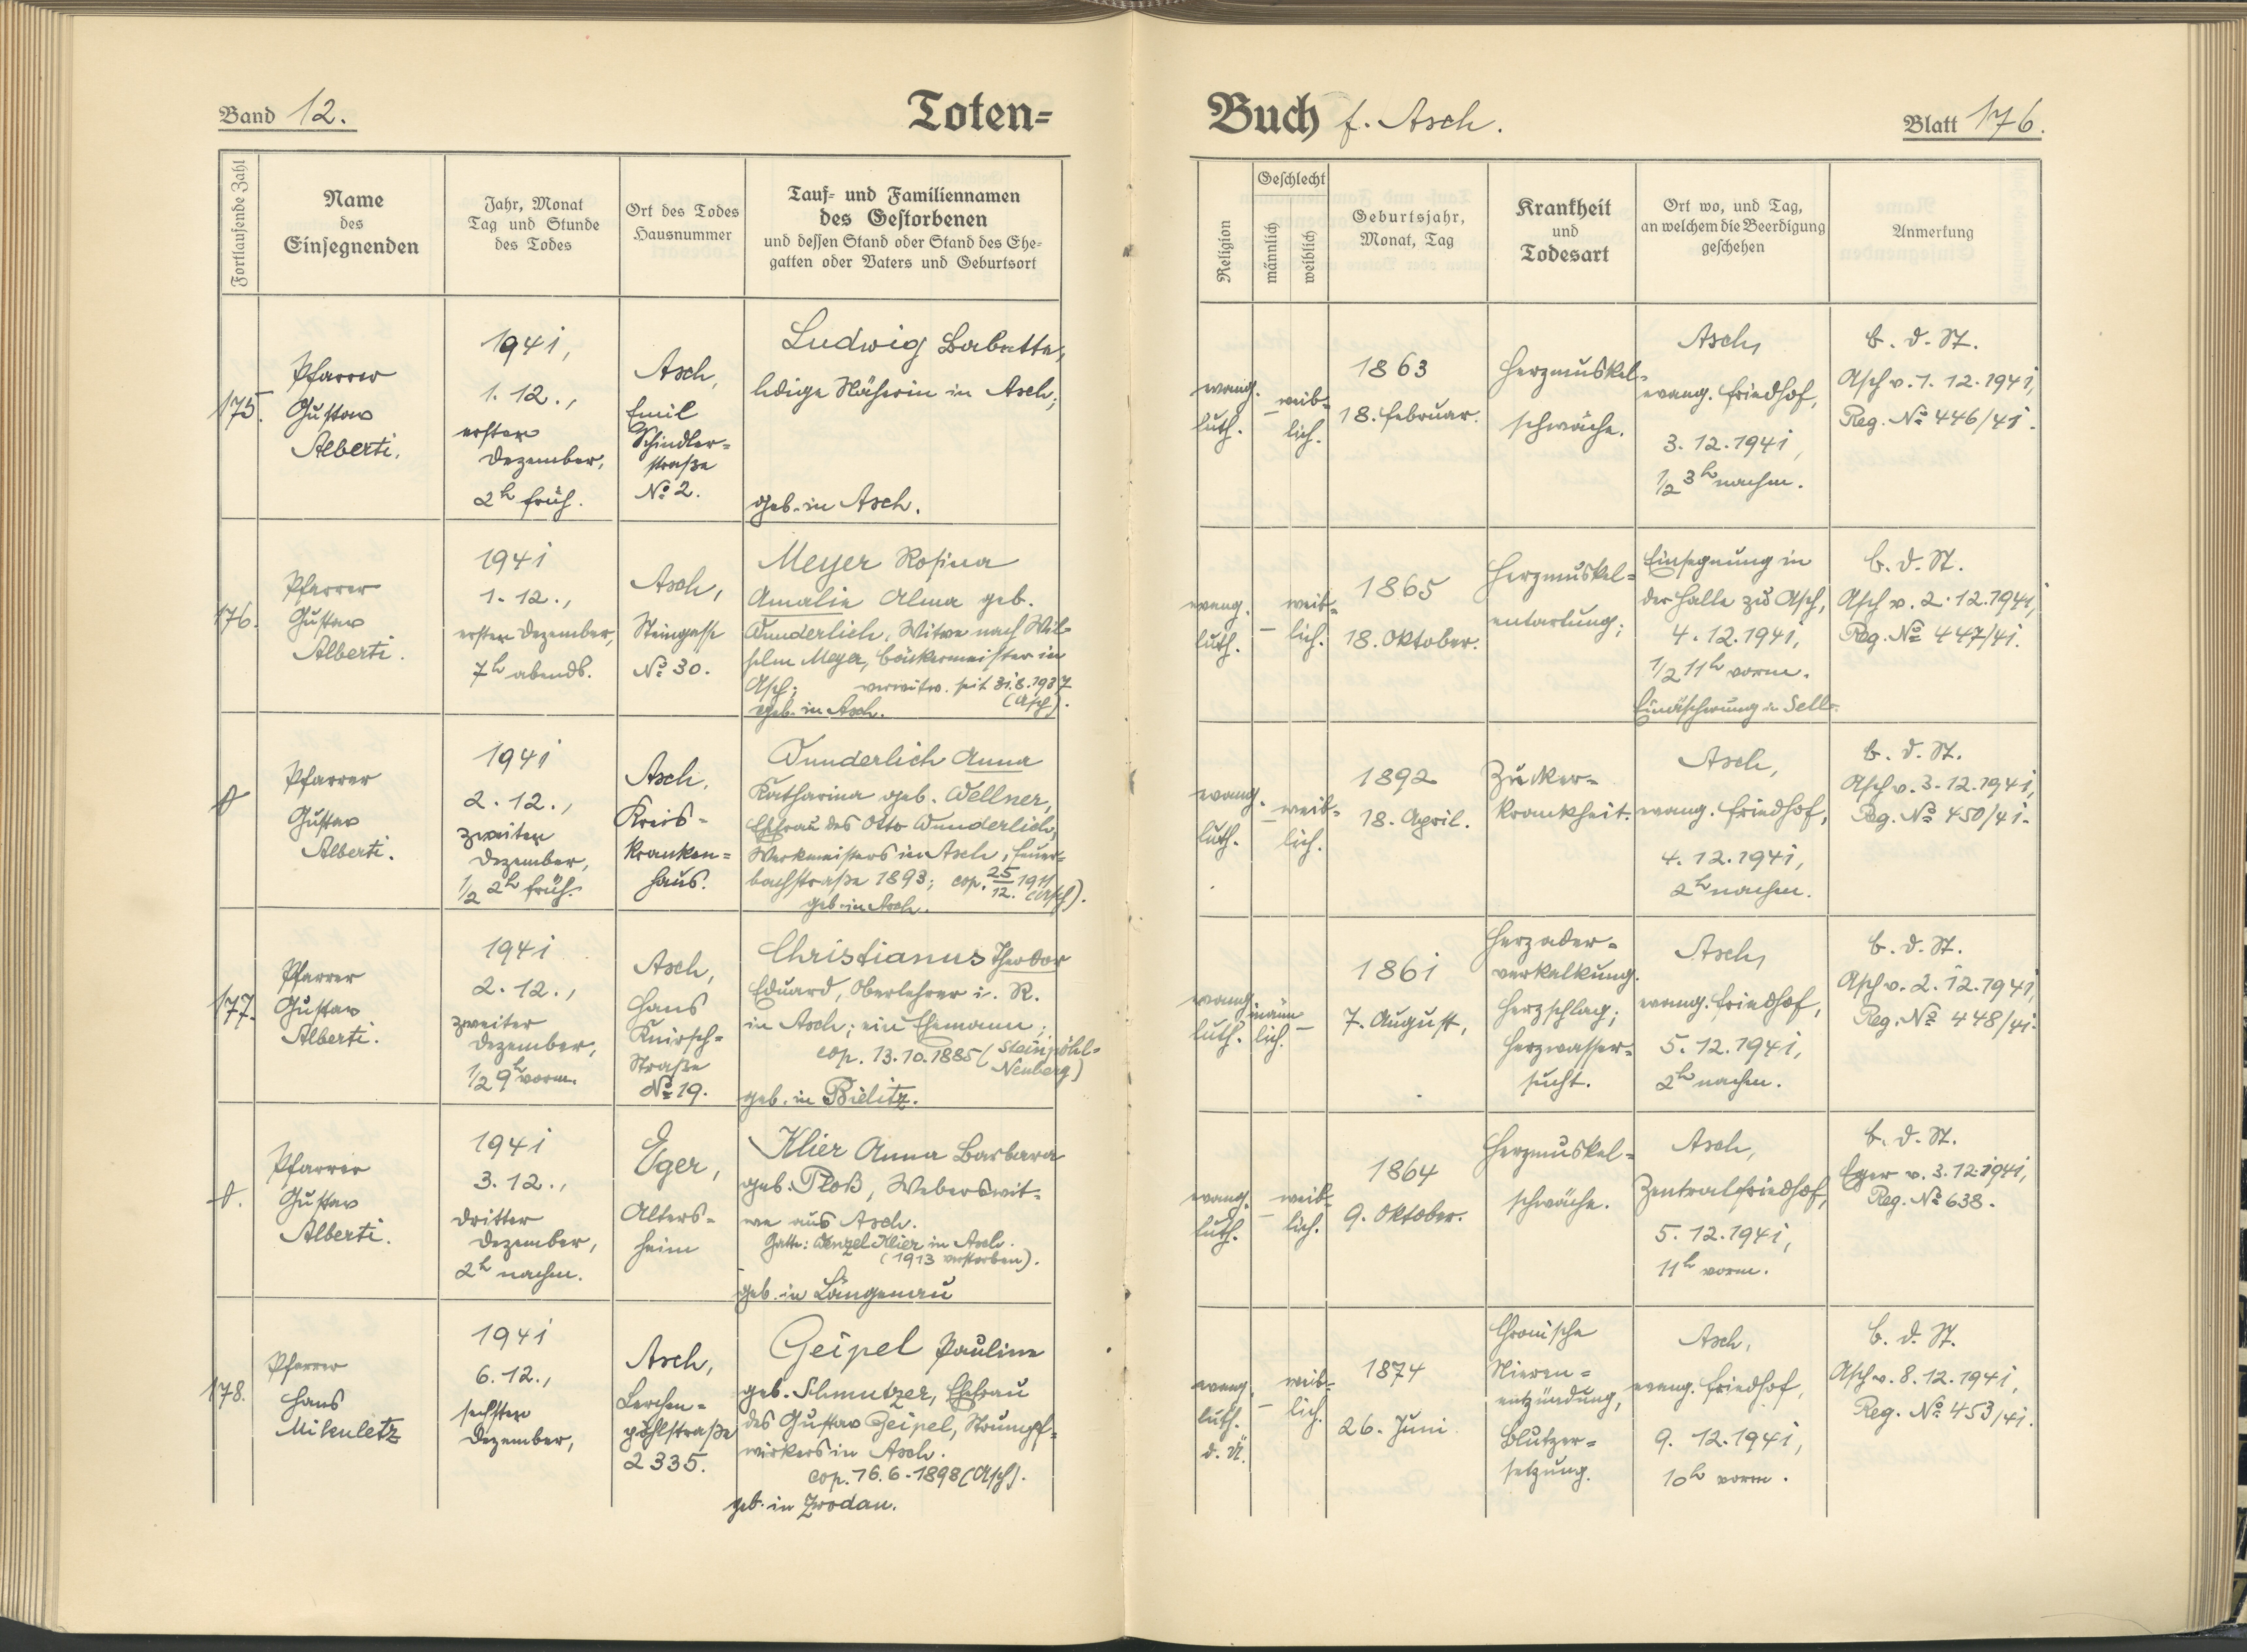 Band 12.
Toten=
Fortlaufende Zahl
Name
des
Einsegnenden
Jahr, Monat
Tag und Stunde
des Todes
Ort des Todes
Hausnummer
Tauf= und Familiennamen
des Gestorbenen
und dessen Stand oder Stand des Ehe=
gatten oder Vaters und Geburtsort
175.
Pfarrer
Gustav
Alberti.
1941,
1. 12.,
erster
Dezember,
2h früh.
Asch,
Emil
Schindler=
straße
No 2.
Ludwig Babette,
ledige Näherin in Asch;
geb. in Asch.
176.
Pfarrer
Gustav
Alberti.
1941
1. 12.,
erster Dezember,
7h abends.
Asch,
Steingasse
No 30.
Meyer Rosina
Amalie Alma geb.
Wunderlich, Witwe nach Wil=
helm Meyer, Bäckermeister in
Asch; verwitw. seit 31.8.1937
(Asch).
geb. in Asch.
Pfarrer
Gustav
Alberti.
1941
2. 12.,
zweiter
Dezember,
1/2 2h früh.
Asch,
Kreis=
kranken=
haus.
Wunderlich Anna
Katharina geb. Wellner,
Ehefrau des Otto Wunderlich,
Werkmeisters in Asch, Feuer=
bachstraße 1893; cop. 25/12. 1911 (Asch).
geb. in Asch.
177.
Pfarrer
Gustav
Alberti.
1941
2. 12.,
zweiter
Dezember,
1/2 9h vorm.
Asch,
Hans
Knirsch=
Straße
No 19.
Christianus Theodor
Eduard, Oberlehrer i. R.
in Asch; ein Ehemann;
cop. 13.10.1885 (Steinpöhl=
Neuberg)
geb. in Bielitz.
Pfarrer
Gustav
Alberti.
1941
3. 12.,
dritter
Dezember,
2h nachm.
Eger,
Alters=
heim
Klier Anna Barbara
geb. Ploß, Weberswit=
we aus Asch.
Gatte: Wenzel Klier in Asch.
(1913 verstorben).
geb. in Längenau
178.
Pfarrer
Hans
Mikuletz
1941
6. 12.,
sechster
Dezember,
Asch,
Lerchen=
pöhlstraße
2335.
Geipel Pauline
geb. Schmutzer, Ehefrau
des Gustav Geipel, Strumpf=
wirkers in Asch.
cop. 16.6.1898 (Asch).
geb. in Zwodau.
Buch f. Asch.
Blatt 176.
Religion
Geschlecht
männlich
weiblich
Geburtsjahr,
Monat, Tag
Krankheit
und
Todesart
Ort wo, und Tag,
an welchem die Beerdigung
geschehen
Anmerkung
evang.
luth.
–
weib=
lich.
1863
18. Februar.
Herzmuskel=
schwäche.
Asch,
evang. Friedhof,
3. 12. 1941,
1/2 3h nachm.
b. d. St.
Asch v. 1. 12. 1941,
Reg. No 446/41.
evang.
luth.
–
weib=
lich.
1865
18. Oktober.
Herzmuskel=
entartung;
Einsegnung in
der Halle zu Asch,
4. 12. 1941,
1/2 11h vorm.
Einäscherung in Selb.
b. d. St.
Asch v. 2. 12. 1941,
Reg. No 447/41.
evang.
luth.
–
weib=
lich.
1892
18. April.
Zucker=
krankheit.
Asch,
evang. Friedhof,
4. 12. 1941,
2h nachm.
b. d. St.
Asch v. 3. 12. 1941,
Reg. No 450/41.
evang.
luth.
männ
lich.
–
1861
7. August,
Herzader=
verkalkung.
Herzschlag;
Herzwasser=
sucht.
Asch,
evang. Friedhof,
5. 12. 1941,
2h nachm.
b. d. St.
Asch v. 2. 12. 1941,
Reg. No 448/41.
evang.
luth.
–
weib=
lich.
1864
9. Oktober.
Herzmuskel=
schwäche.
Asch,
Zentralfriedhof,
5. 12. 1941,
11h vorm.
b. d. St.
Eger v. 3. 12. 1941,
Reg. No 638.
evang.
luth.
d. Ü.
–
weib=
lich.
1874
26. Juni
Chronische
Nieren=
entzündung,
Blutzer=
setzung.
Asch,
evang. Friedhof,
9. 12. 1941,
10h vorm.
b. d. St.
Asch v. 8. 12. 1941,
Reg. No 453/41.